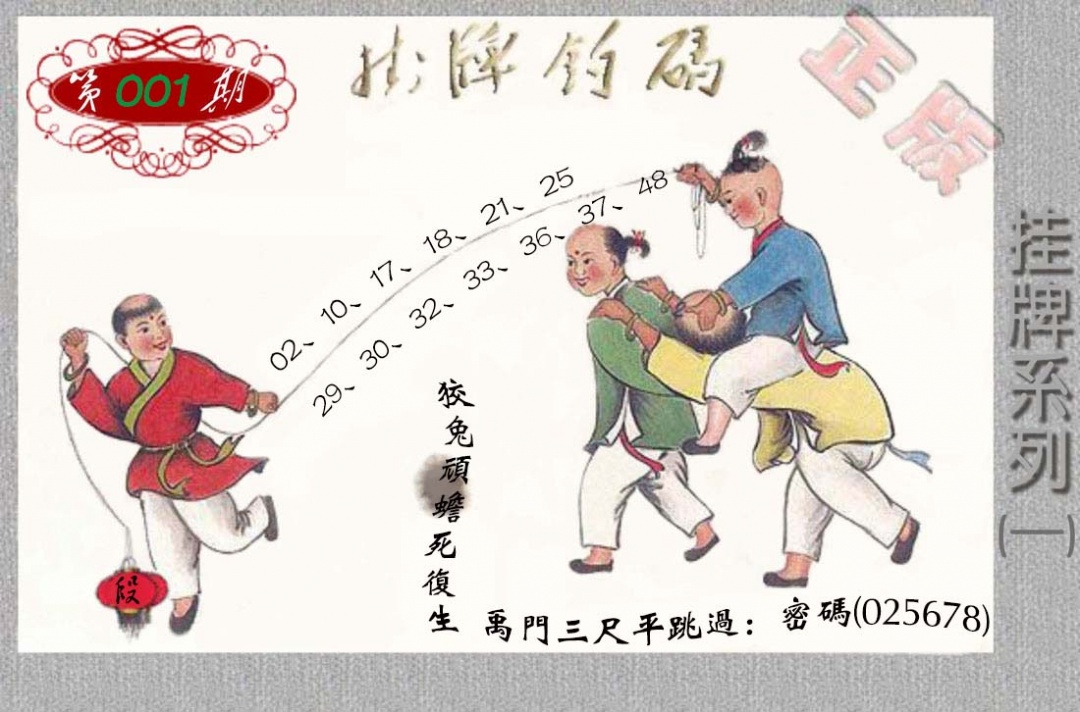 第001期
掛牌釣碼
正版
02、10、17、18、21、25
29、30、32、33、36、37、48
狡兔頑蟾死復生
禹門三尺平跳過：密碼(025678)
段
挂牌系列(一)